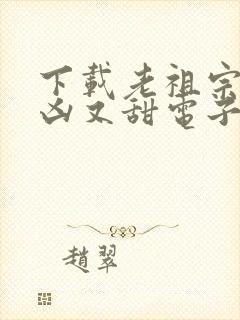 下載老祖宗
凶又甜電子
趙翠